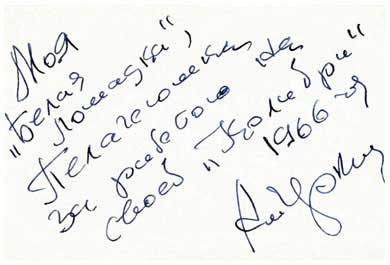 Моя
"Белая
Лошадка",
Пелагеюшкин
за работой на
своей "Колибри"
1966-й